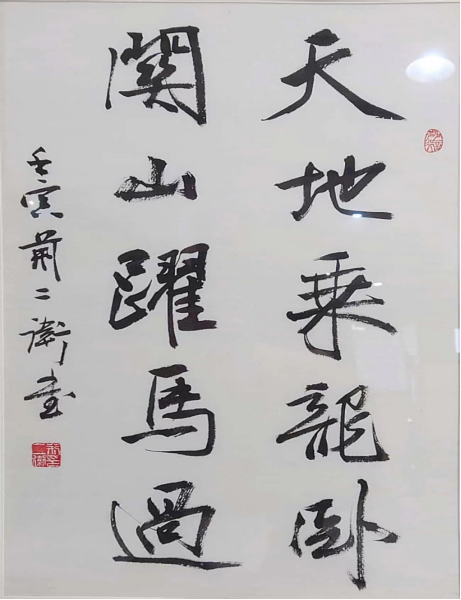 天地乘龍卧
關山躍馬過
壬寅荊二衛書